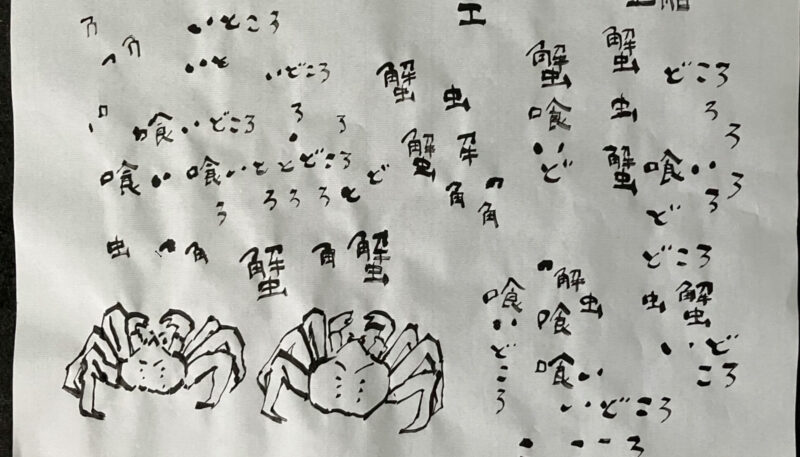 いところ
角 いと いどころ
喰いどころ
喰い 喰いととどころ
ろ ろろろ とど
虫 角 蟹 角 蟹
蟹 虫
蟹
角 角
エ
蟹喰いど
蟹虫蟹 喰い
どころ
ろ
ろ
ろ
どろ
どころ
虫 蟹
いど
ころ
喰いどころ
解虫
喰
喰い
いどころ
ろ